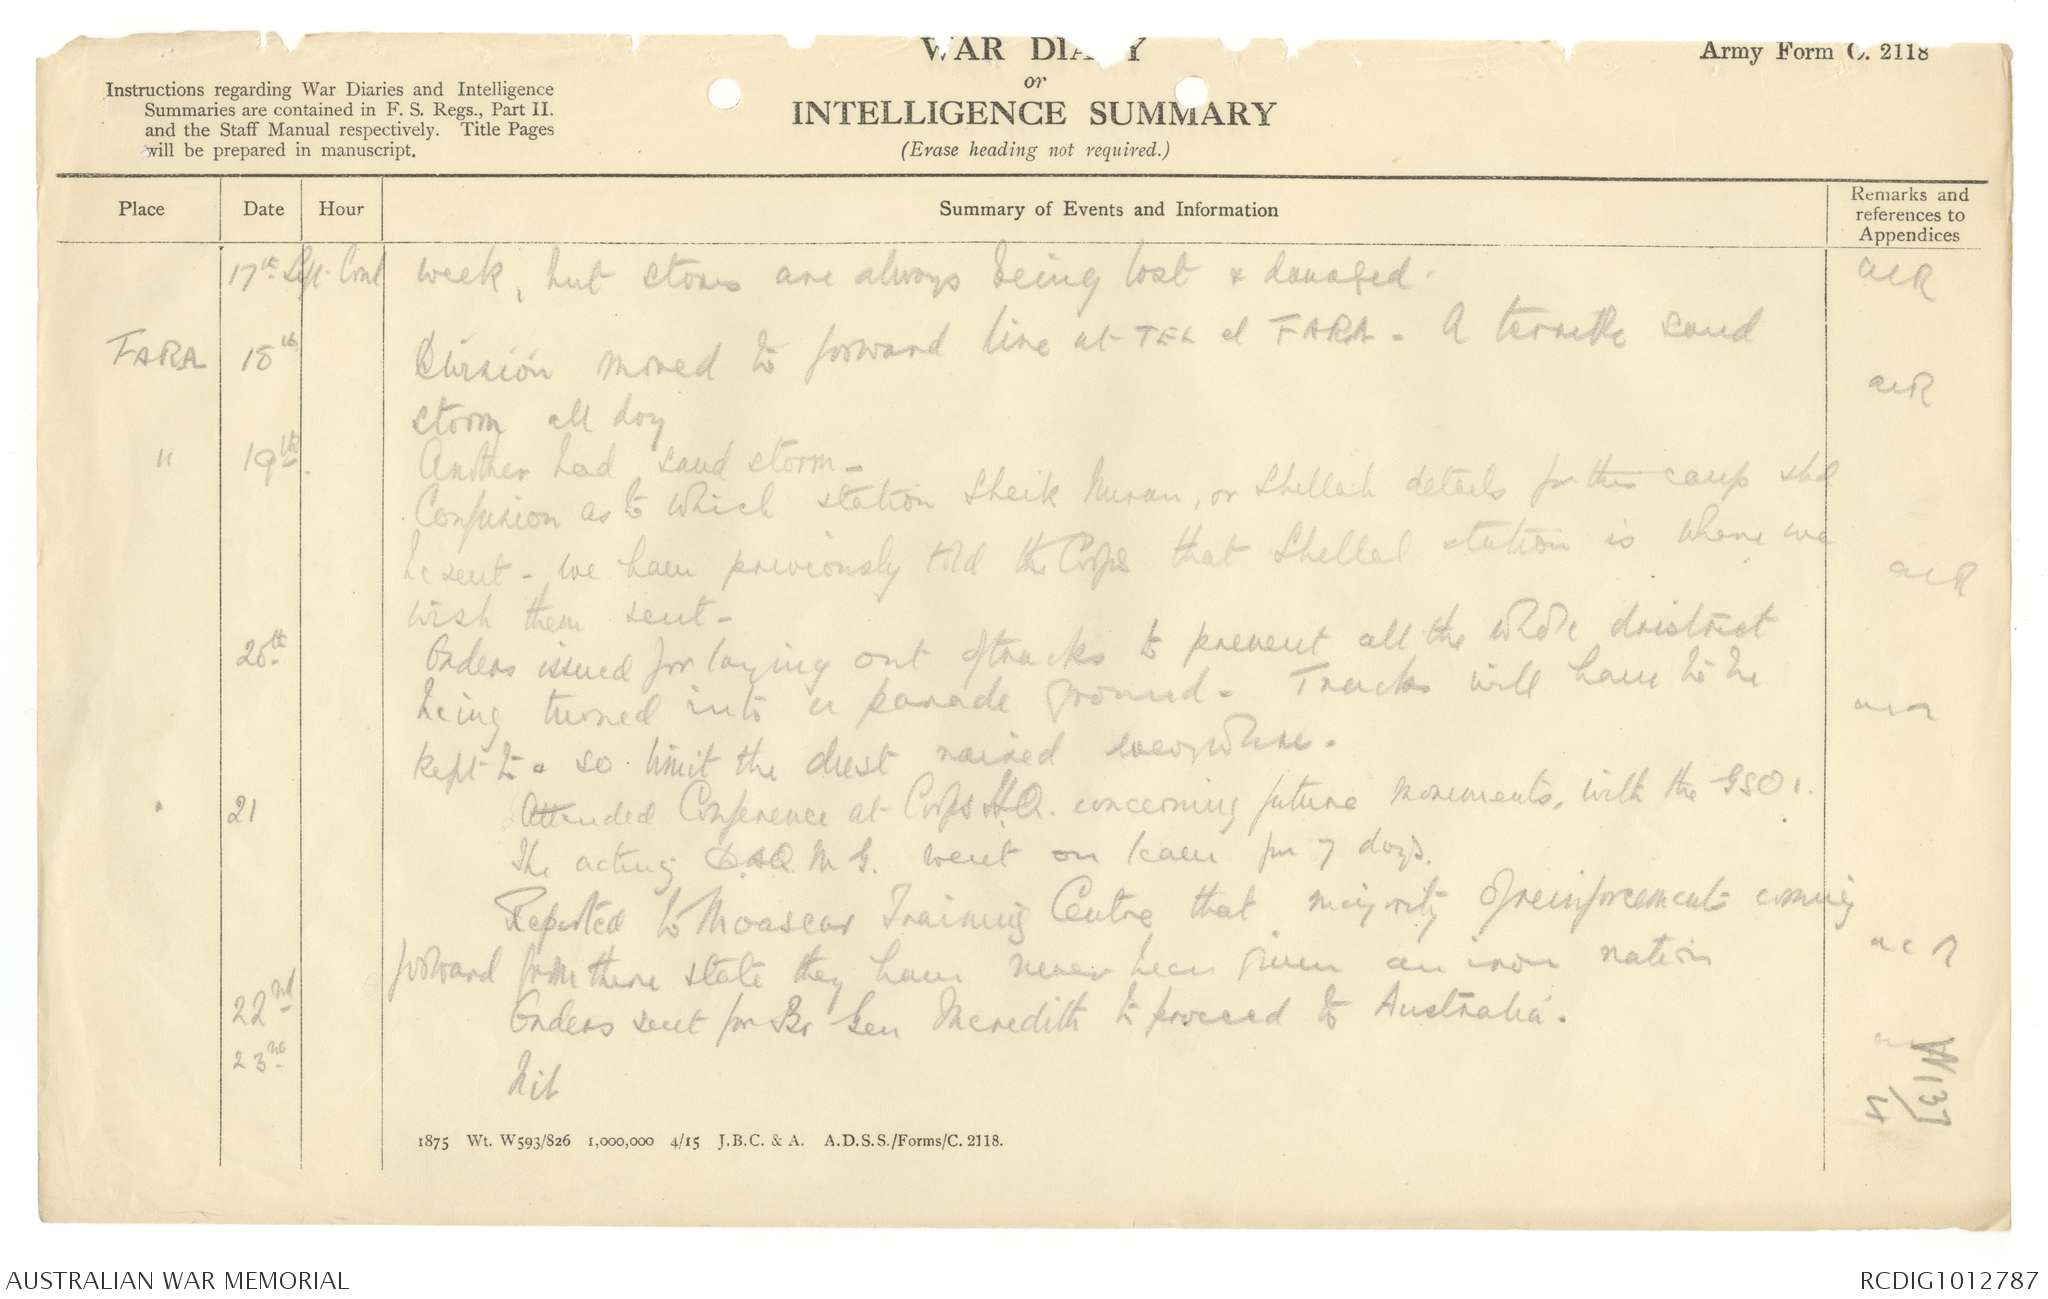 WAR DIARY
Army Form C. 2118
or
INTELLIGENCE SUMMARY
(Erase heading not required.)
Instructions regarding War Diaries and Intelligence
Summaries are contained in F. S. Regs., Part II.
and the Staff Manual respectively. Title Pages
will be prepared in manuscript.
Place Date Hour Summary of Events and Information Remarks and references to Appendices
17th Sept. Cont week, but stores are always being lost & damaged. ACR
FARA 18th Division moved to forward line at TEL el FARA - A terrible sand
storm all day ACR
" 19th. Another bad sand storm -
Confusion as to which station Sheik Nuran, or Shellal details for this camp shd
be sent - we have previously told the Corps that Shellal station is where we
wish them sent - ACR
20th Orders issued for laying out of tracks to prevent all the whole dristrict
being turned into a parade ground - Tracks will have to be
kept to & so limit the dust raised everywhere.
" 21 Attended Conference at Corps H.Q. concerning future movements, with the GSO 1.
The acting D.A.Q.M.G. went on leave for 7 days.
Reported to Moascar Training Centre that majority of reinforcements coming
forward from there state they have never been given an iron ration ACR
22nd Orders sent for Br Gen Meredith to proceed to Australia.
23rd Nil
1875 Wt. W593/826 1,000,000 4/15 J.B.C. & A. A.D.S.S./Forms/C. 2118.
AUSTRALIAN WAR MEMORIAL
RCDIG1012787